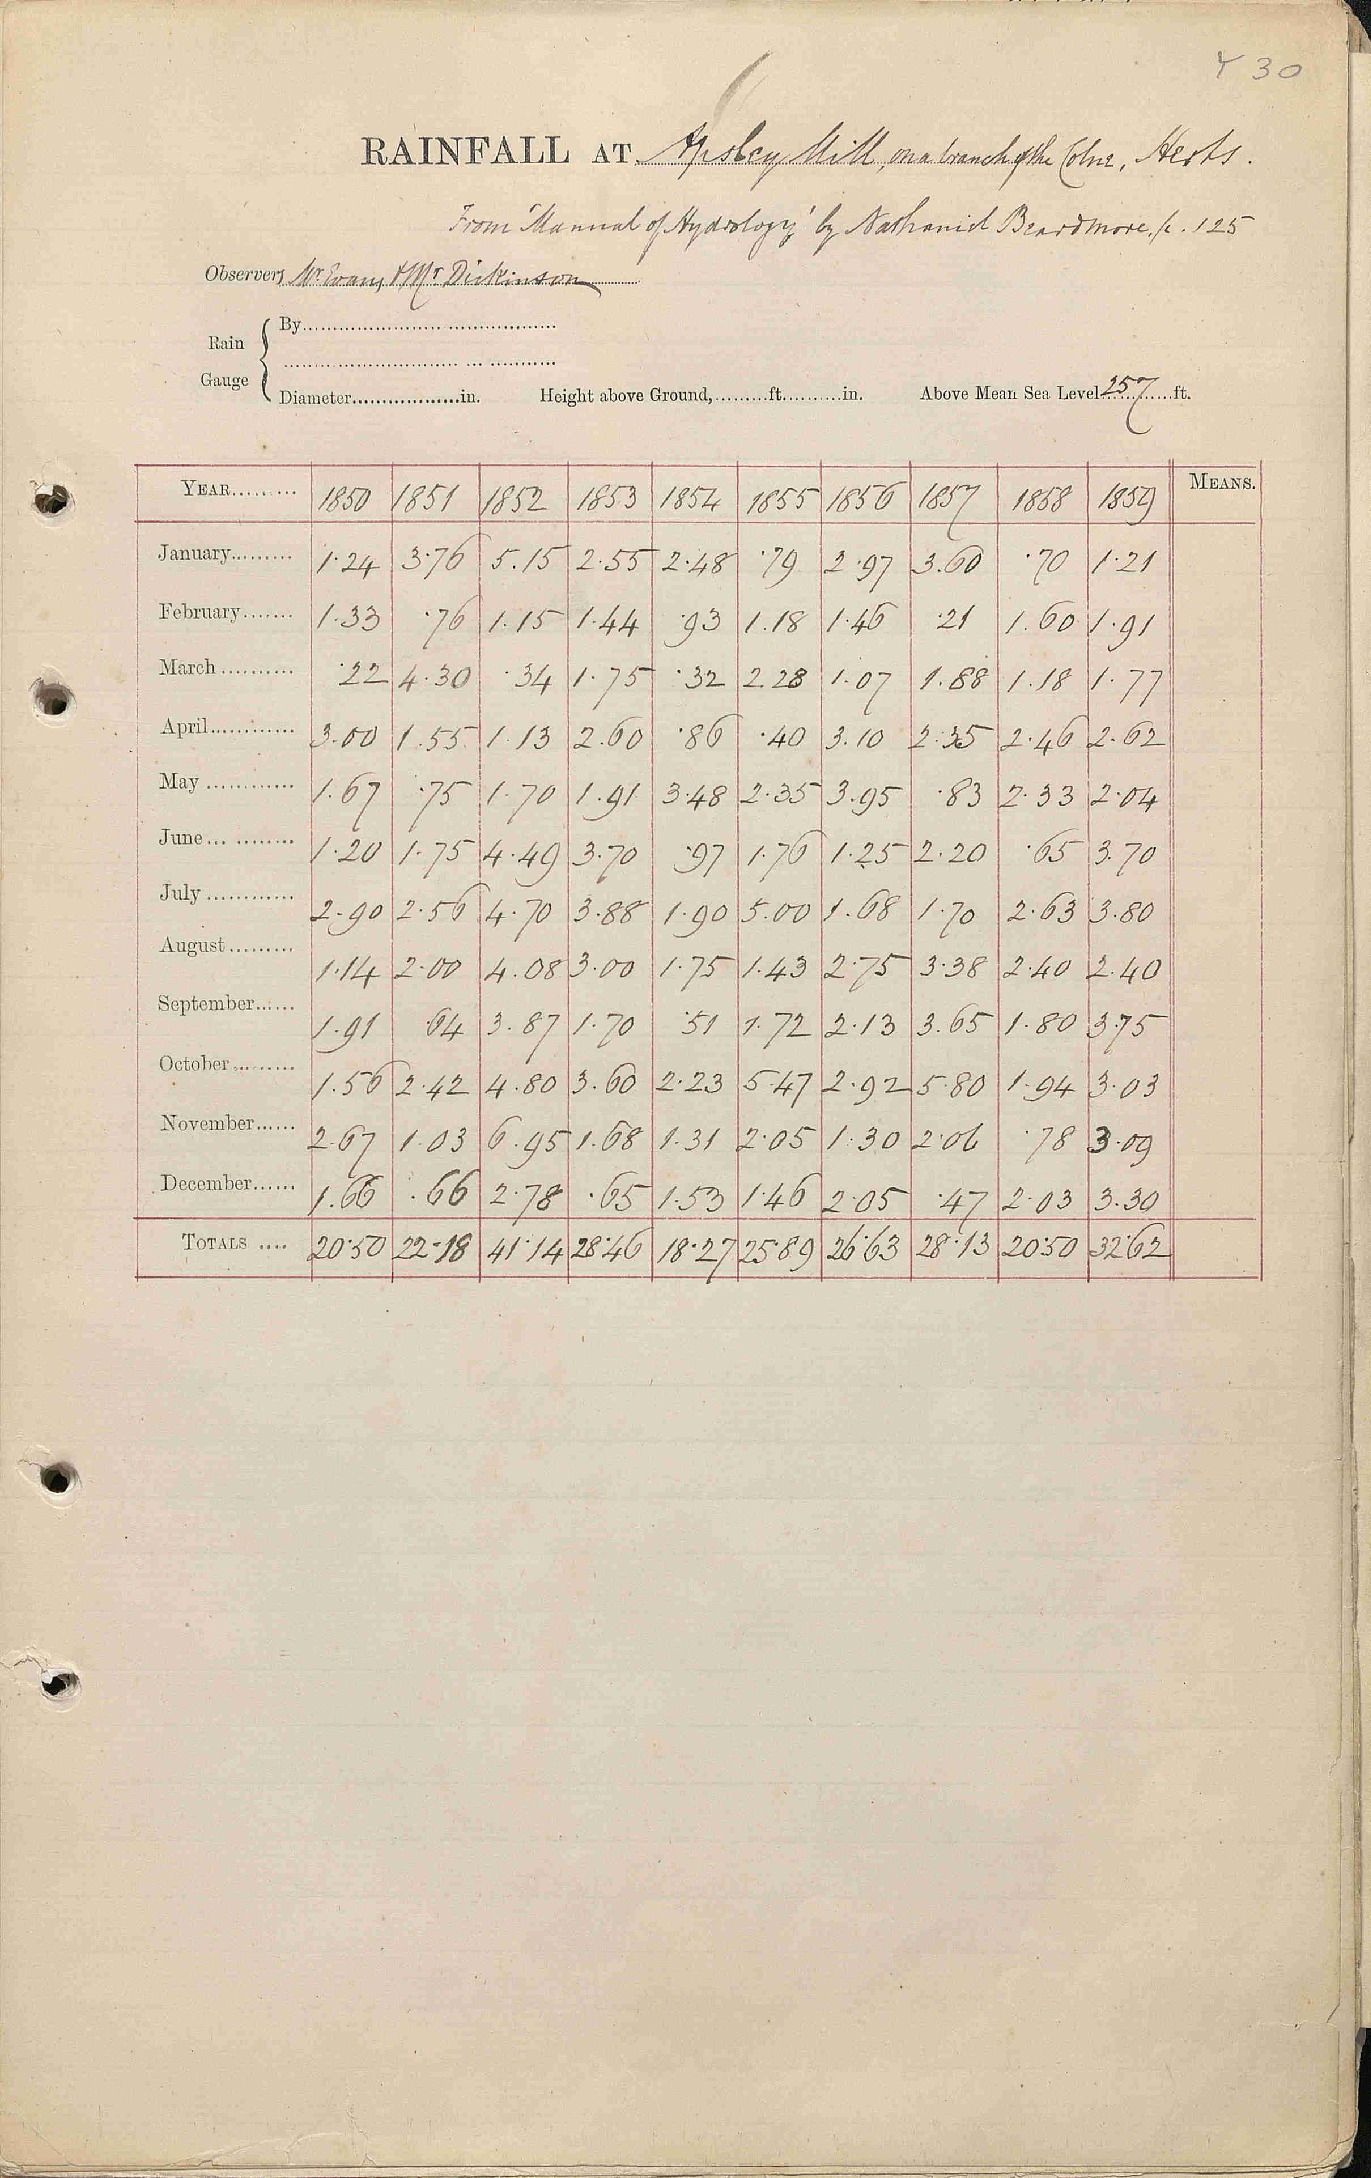 Y 30
RAINFALL AT Apsley Mill, on a branch of the Colne, Herts.
From 'Manual of Hydrology' by Nathaniel Beardmore, p. 125
Observers Mr Evans & Mr Dickinson
Rain Gauge { By
Diameter in. Height above Ground, ft. in. Above Mean Sea Level 257 ft.
YEAR 1850 1851 1852 1853 1854 1855 1856 1857 1858 1859 MEANS.
January 1.24 3.76 5.15 2.55 2.48 .79 2.97 3.60 .70 1.21
February 1.33 .76 1.15 1.44 .93 1.18 1.46 .21 1.60 1.91
March .22 4.30 .34 1.75 .32 2.28 1.07 1.88 1.18 1.77
April 3.00 1.55 1.13 2.60 .86 .40 3.10 2.35 2.46 2.62
May 1.67 .75 1.70 1.91 3.48 2.35 3.95 .83 2.33 2.04
June 1.20 1.75 4.49 3.70 .97 1.76 1.25 2.20 .65 3.70
July 2.90 2.56 4.70 3.88 1.90 5.00 1.68 1.70 2.63 3.80
August 1.14 2.00 4.08 3.00 1.75 1.43 2.75 3.38 2.40 2.40
September 1.91 .64 3.87 1.70 .51 1.72 2.13 3.65 1.80 3.75
October 1.56 2.42 4.80 3.60 2.23 5.47 2.92 5.80 1.94 3.03
November 2.67 1.03 6.95 1.68 1.31 2.05 1.30 2.06 .78 3.09
December 1.66 .66 2.78 .65 1.53 1.46 2.05 .47 2.03 3.30
TOTALS 20.50 22.18 41.14 28.46 18.27 25.89 26.63 28.13 20.50 32.62